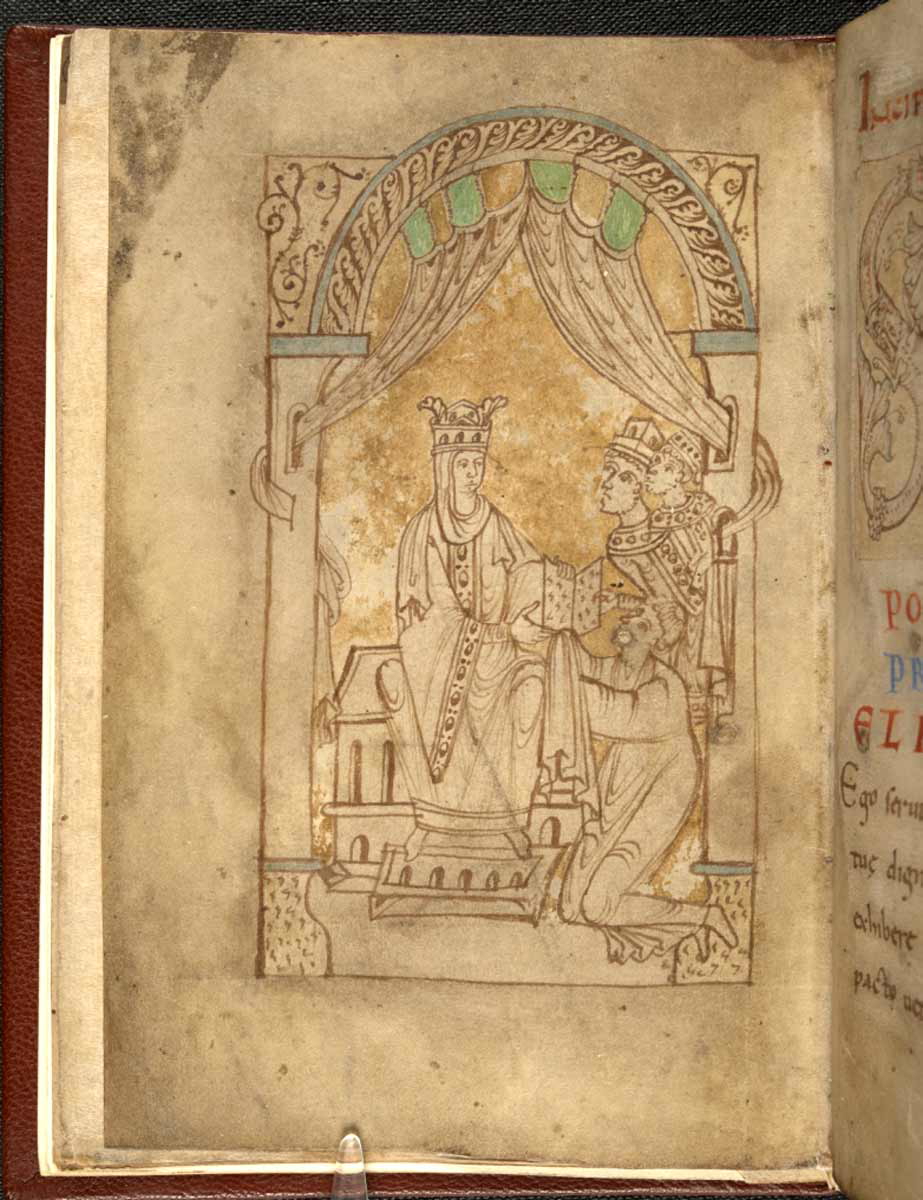 Inci
PO
PR
ELI
Ego seru
tuę dign
exhibere
pacto